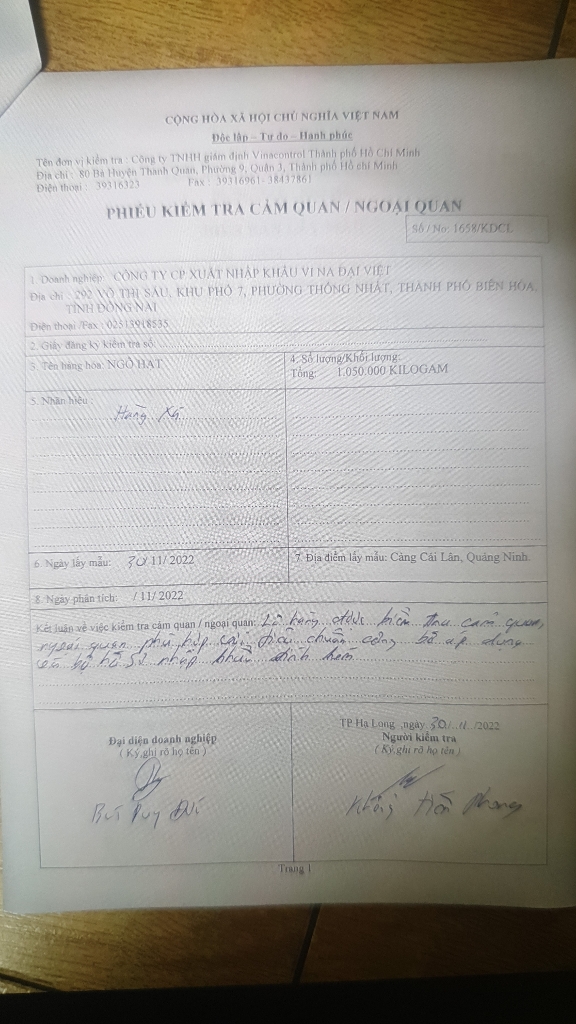 CỘNG HÒA XÃ HỘI CHỦ NGHĨA VIỆT NAM
Độc lập – Tự do – Hạnh phúc
Tên đơn vị kiểm tra : Công ty TNHH giám định Vinacontrol Thành phố Hồ Chí Minh
Địa chỉ : 80 Bà Huyện Thanh Quan, Phường 9, Quận 3, Thành phố Hồ chí Minh
Điện thoại : 39316323 Fax : 39316961- 38437861
PHIẾU KIỂM TRA CẢM QUAN / NGOẠI QUAN
Số / No: 1658/KDCL
1. Doanh nghiệp: CÔNG TY CP XUẤT NHẬP KHẨU VI NA ĐẠI VIỆT
Địa chỉ : 292 VÕ THỊ SÁU, KHU PHỐ 7, PHƯỜNG THỐNG NHẤT, THÀNH PHỐ BIÊN HÒA,
TỈNH ĐỒNG NAI
Điện thoại /Fax : 02513918535
2. Giấy đăng ký kiểm tra số:
3. Tên hàng hóa: NGÔ HẠT
4. Số lượng/Khối lượng:
Tổng: 1.050.000 KILOGAM
5. Nhãn hiệu :
Hàng Xá
6. Ngày lấy mẫu: 30/11/2022
7. Địa điểm lấy mẫu: Cảng Cái Lân, Quảng Ninh.
8. Ngày phân tích: / 11/ 2022
Kết luận về việc kiểm tra cảm quan / ngoại quan: Lô hàng được kiểm tra cảm quan,
ngoại quan phù hợp với tiêu chuẩn công bố áp dụng
và bộ hồ sơ nhập khẩu đính kèm
TP Hạ Long ,ngày 30/ 11 /2022
Đại diện doanh nghiệp
( Ký,ghi rõ họ tên )
Người kiểm tra
( Ký,ghi rõ họ tên )
Phong
Trang 1